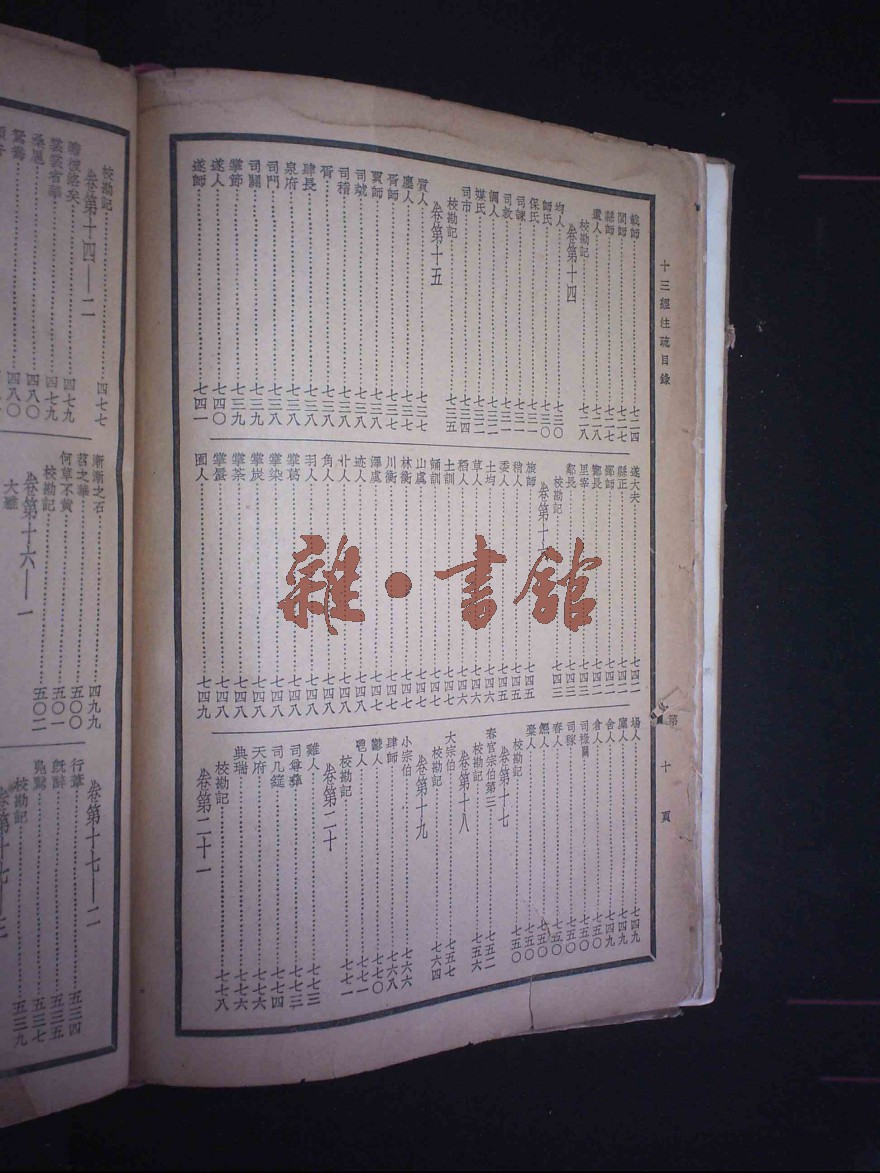 十三經注疏目錄
第十頁
載師 七二四
閭師 七二七
縣師 七二七
遺人 七二八
校勘記 七二八
卷第十四
均人 七三〇
師氏 七三〇
保氏 七三一
司諫 七三一
司救 七三二
調人 七三二
媒氏 七三二
司市 七三四
校勘記 七三五
卷第十五
質人 七三七
廛人 七三七
胥師 七三七
賈師 七三八
司虣 七三八
司稽 七三八
胥 七三八
肆長 七三八
泉府 七三八
司門 七三八
司關 七三九
掌節 七三九
遂人 七四〇
遂師 七四一
遂大夫 七四二
縣正 七四二
鄙師 七四二
酇長 七四二
里宰 七四三
鄰長 七四三
校勘記 七四三
卷第十六
旅師 七四五
稍人 七四五
委人 七四五
土均 七四六
草人 七四六
稻人 七四六
土訓 七四七
誦訓 七四七
山虞 七四七
林衡 七四七
川衡 七四七
澤虞 七四七
迹人 七四八
丱人 七四八
角人 七四八
羽人 七四八
掌葛 七四八
掌染 七四八
掌炭 七四八
掌荼 七四八
掌蜃 七四八
囿人 七四九
場人 七四九
廩人 七四九
舍人 七四九
倉人 七五〇
司祿闕 七五〇
司稼 七五〇
舂人 七五〇
饎人 七五〇
槀人 七五〇
校勘記 七五〇
卷第十七
春官宗伯第三 七五二
校勘記 七五六
卷第十八
大宗伯 七五七
校勘記 七六四
卷第十九
小宗伯 七六六
肆師 七六八
鬱人 七七〇
鬯人 七七一
校勘記 七七一
卷第二十
雞人 七七三
司尊彝 七七三
司几筵 七七四
天府 七七六
典瑞 七七六
校勘記 七七八
卷第二十一
校勘記 四七七
卷第十四—二
裳裳者華 四七九
桑扈 四八〇
鴛鴦 四八〇
漸漸之石 四九九
苕之華 五〇〇
何草不黃 五〇一
校勘記 五〇二
卷第十六—一
大雅
卷第十七—二
行葦 五三四
既醉 五三五
鳧鷖 五三七
校勘記 五三九
雜·書館